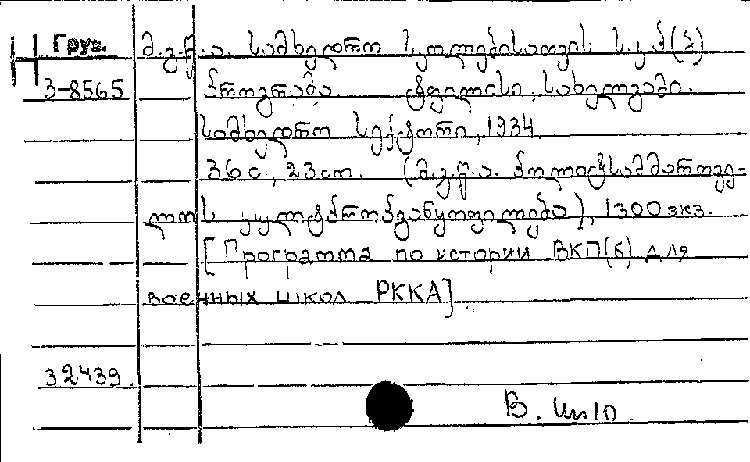 Груз. მ.გ.წ.ა. სამხედრო სკოლებისათვის ს.კ.პ(ბ)
3-8565 პროგრამა. ტფილისი, სახელგამი.
სამხედრო სექტორი, 1934.
36 с., 23 cm. (მ.გ.წ.ა. პოლიტსამმართვე-
ლოს კულტპროპგანყოფილება), 1300 экз.
[Программа по истории ВКП(б) для
военных школ РККА].
32439.